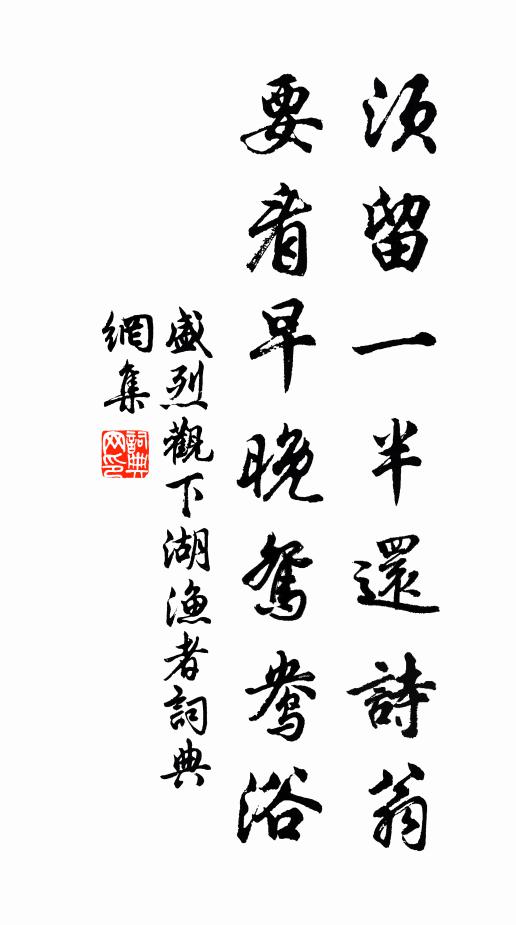 須留一半還詩翁
要看早晚鴛鴦浴
盛烈觀下湖漁者詞典
網集
詞典
网印